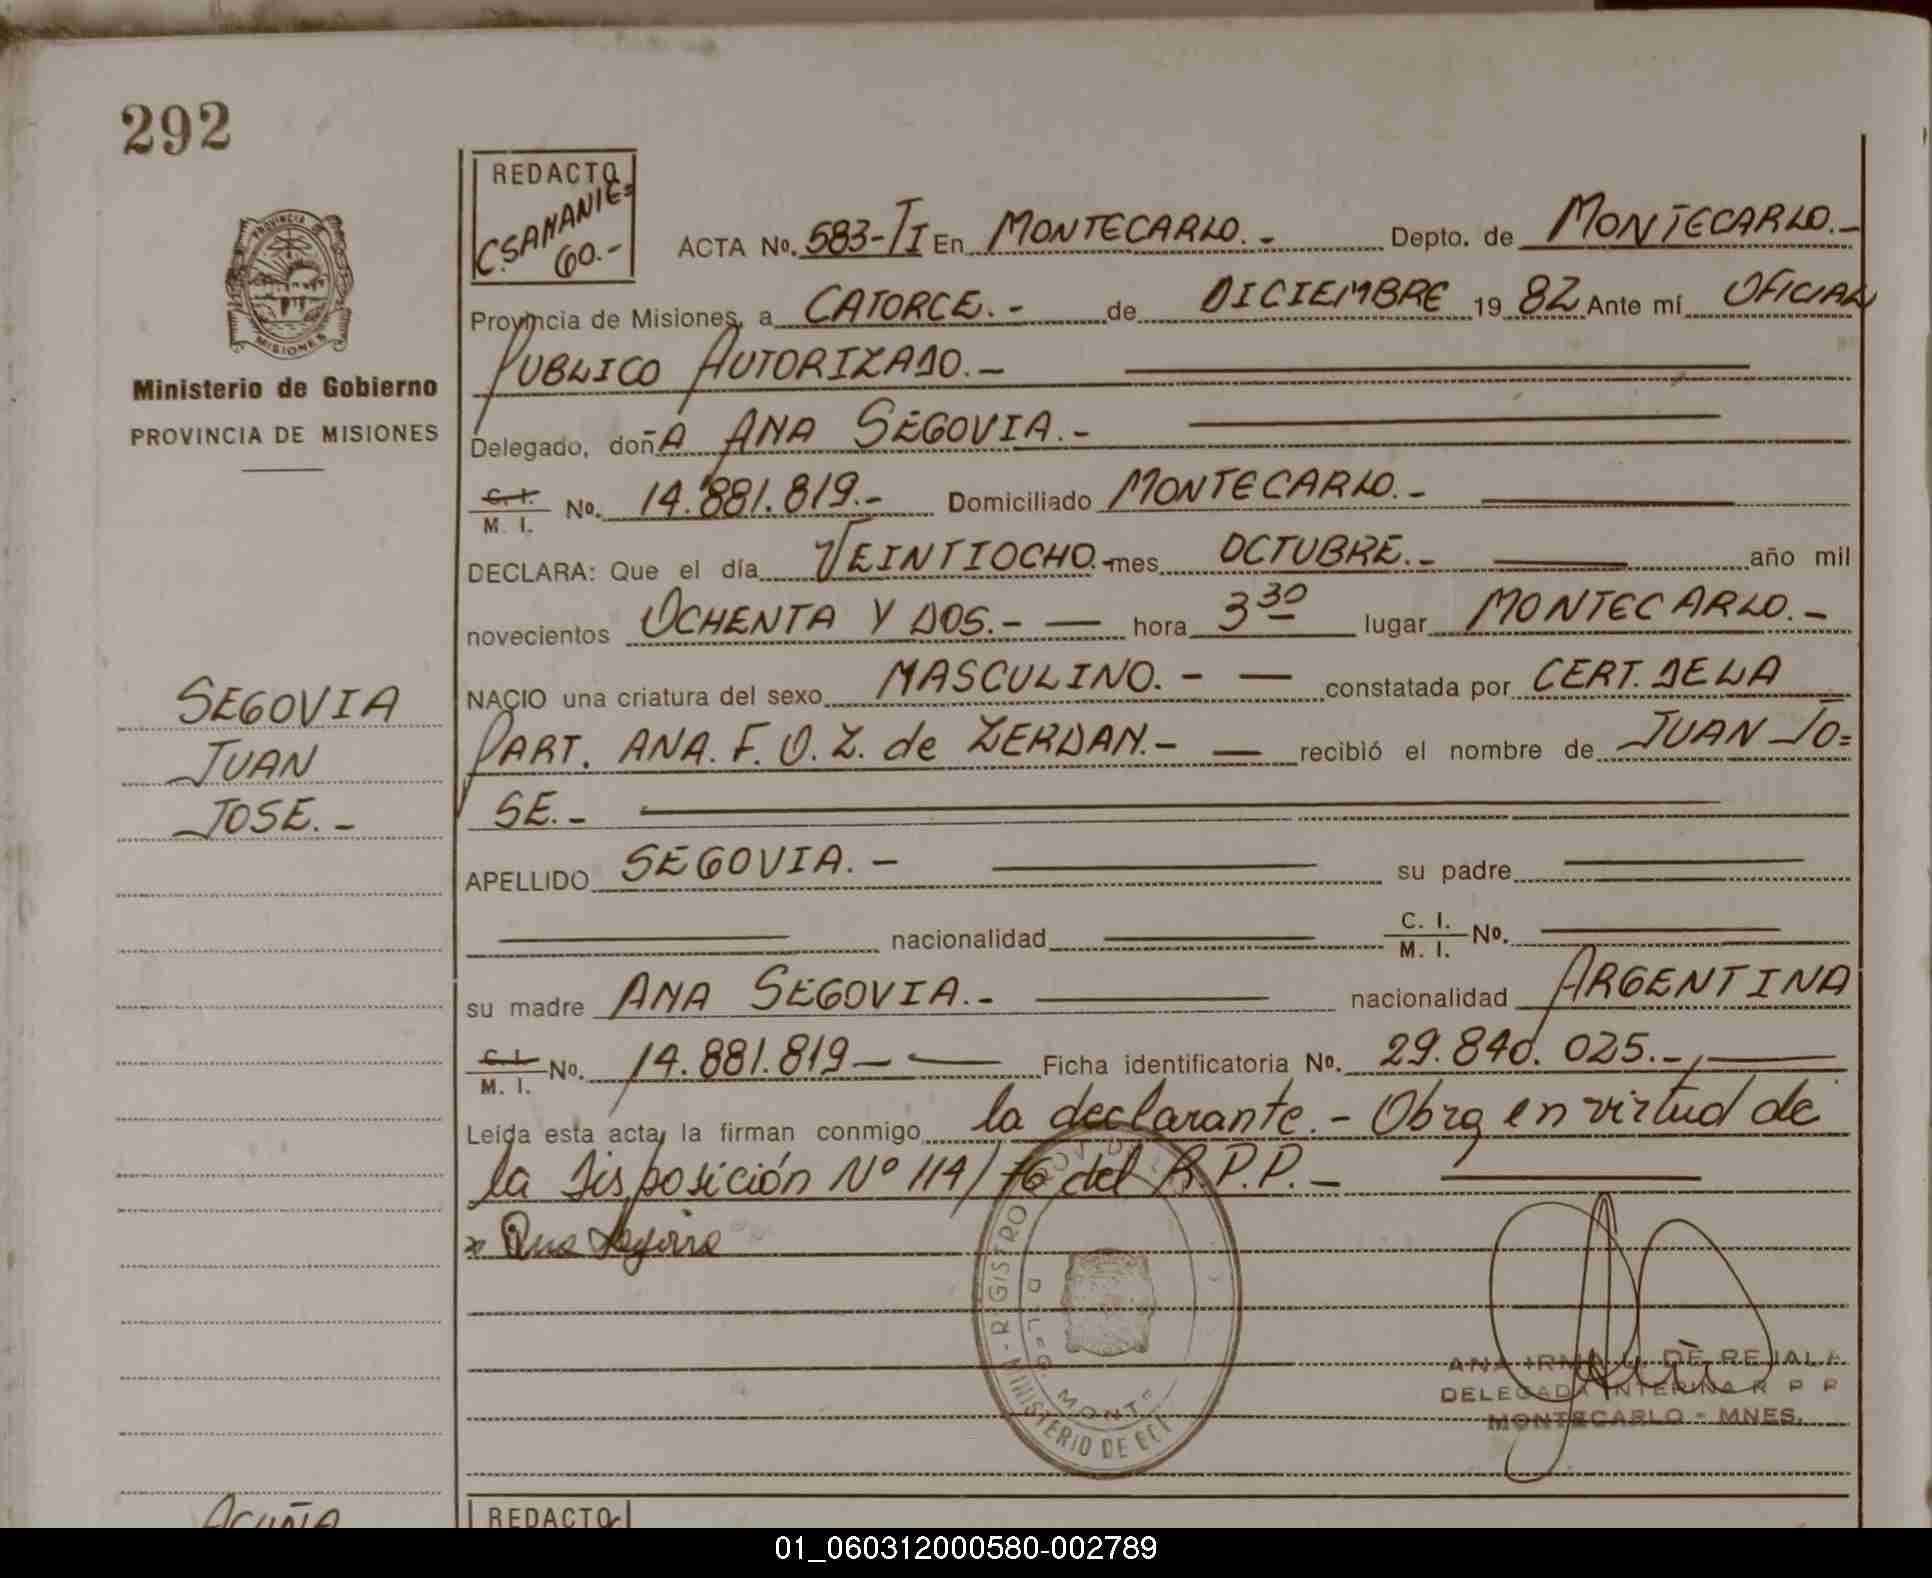 292
PROVINCIA
MISIONES
Ministerio de Gobierno
PROVINCIA DE MISIONES
SEGOVIA
JUAN
JOSE.-
REDACTO
C. SAMANIE=
GO.-
ACTA No. 583-TI En MONTECARLO.- Depto. de MONTECARLO.-
Provincia de Misiones, a CATORCE.- de DICIEMBRE 1982 Ante mí OFICIAL
PUBLICO AUTORIZADO.-
Delegado, doñA ANA SEGOVIA.-
C. I.
M. I. No. 14.881.819.- Domiciliado MONTECARLO.-
DECLARA: Que el día VEINTIOCHO.- mes OCTUBRE.- año mil
novecientos OCHENTA Y DOS.- hora 3 30 lugar MONTECARLO.-
NACIO una criatura del sexo MASCULINO.- constatada por CERT. DE LA
PART. ANA. F. O. Z. de ZERDAN.- recibió el nombre de JUAN JO=
SE.-
APELLIDO SEGOVIA.- su padre
nacionalidad C. I.
M. I. No.
su madre ANA SEGOVIA.- nacionalidad ARGENTINA
C. I.
M. I. No. 14.881.819- Ficha identificatoria No. 29.840.025.-
Leída esta acta, la firman conmigo la declarante.- Obra en virtud de
la Disposición Nº 114/76 del R.P.P.-
x Ana Segovia
REGISTRO
DELEG. MONTE
MINISTERIO DE
ANA IRMA DE REJALA
DELEGADA INTERINA R P P
MONTECARLO - MNES.
ACUÑA
REDACTO
01_060312000580-002789